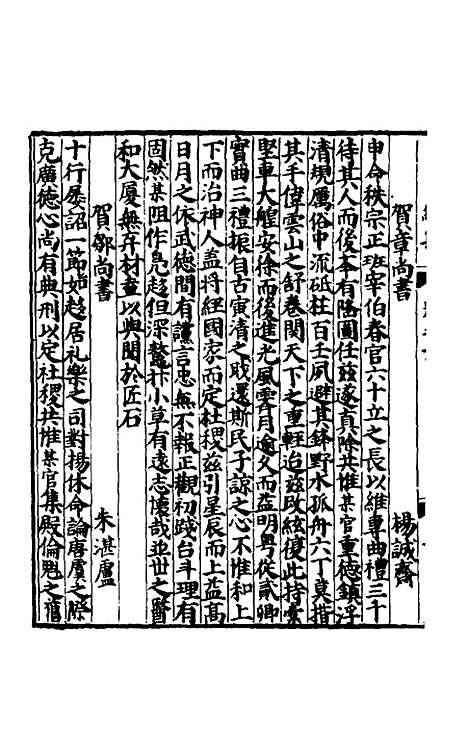 賀章尚書 楊誠齋
申命秩宗正班宰伯春官六十立之長以維專曲禮三千
待其人而後本有隆圖任玆遂真除共惟某官重德鎮浮
清規厲俗中流砥柱百壬夙避其鋒野水孤舟六丁莫指
其手偉雲山之舒卷関天下之重輕迨玆改絃復此持槖
堅車大艎安徐而後進光風霽月逾久而益明粤從貳卿
實曲三禮振自古寅清之戝還斯民子諒之心不惟和上
下而治神人盖將經國家而定社稷玆引星辰而上益髙
日月之依武德間有讜言忠無不報正觀初踐台斗理有
固然某阻作凫趍但深鰲抃小草有遠志懷哉並世之賢
和大厦無弃材童以與聞於匠石
賀鄒尚書 朱湛盧
十行屡詔一節始趍居礼樂之司對揚休命論唐虞之際
克廣德心尚有典刑以定社稷共惟某官集殿倫魁之舊